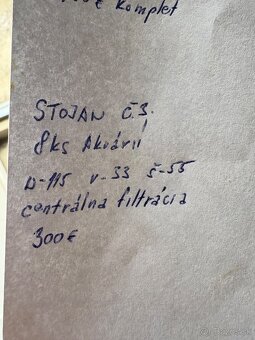 komplet
STOJAN č.3.
8ks Akvárií
D-115 v-33 š-55
centrálna filtrácia
300€